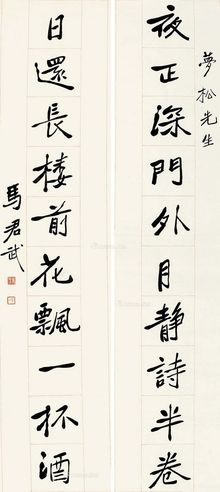 夢松先生
夜正深門外月静詩半卷
日還長樓前花飄一杯酒
馬君武